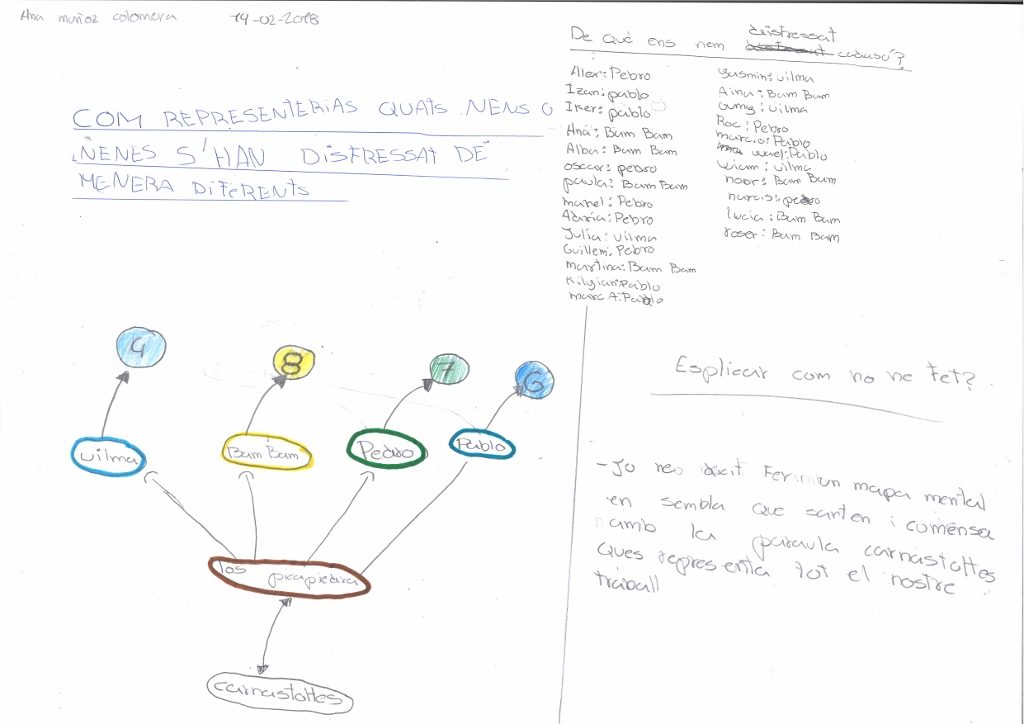 Ana muñoz colomera 14-02-2018
COM REPRESENTERIAS QUATS NENS O
NENES S'HAN DISFRESSAT DE
MENERA DIFERENTS
De què ens nem disfressat
cadascú?
Alex: Pedro
Izan: pablo
Iker: pablo
Ana: Bam Bam
Alba: Bam Bam
oscar: pedro
paula: Bam Bam
manel: Pebro
Adria: Pebro
Julia: vilma
Guillem: Pebro
martina: Bam Bam
Kilyian: Pablo
marc A: Pablo
Yasmin: vilma
Aina: Bam Bam
vilma
Roc: Pebro
marcio: Pablo
Pablo
wiam: vilma
noor: Bam Bam
narcis: pedro
lucia: Bam Bam
roser: Bam Bam
4
8
7
6
vilma
Bam Bam
Pedro
Pablo
los picapiedra
carnastoltes
Esplicar com ho he fet?
-Jo fer un mapa mental
en sembla que santen i comensa
amb la paraula carnastoltes
ques representa tot el nostre
traball